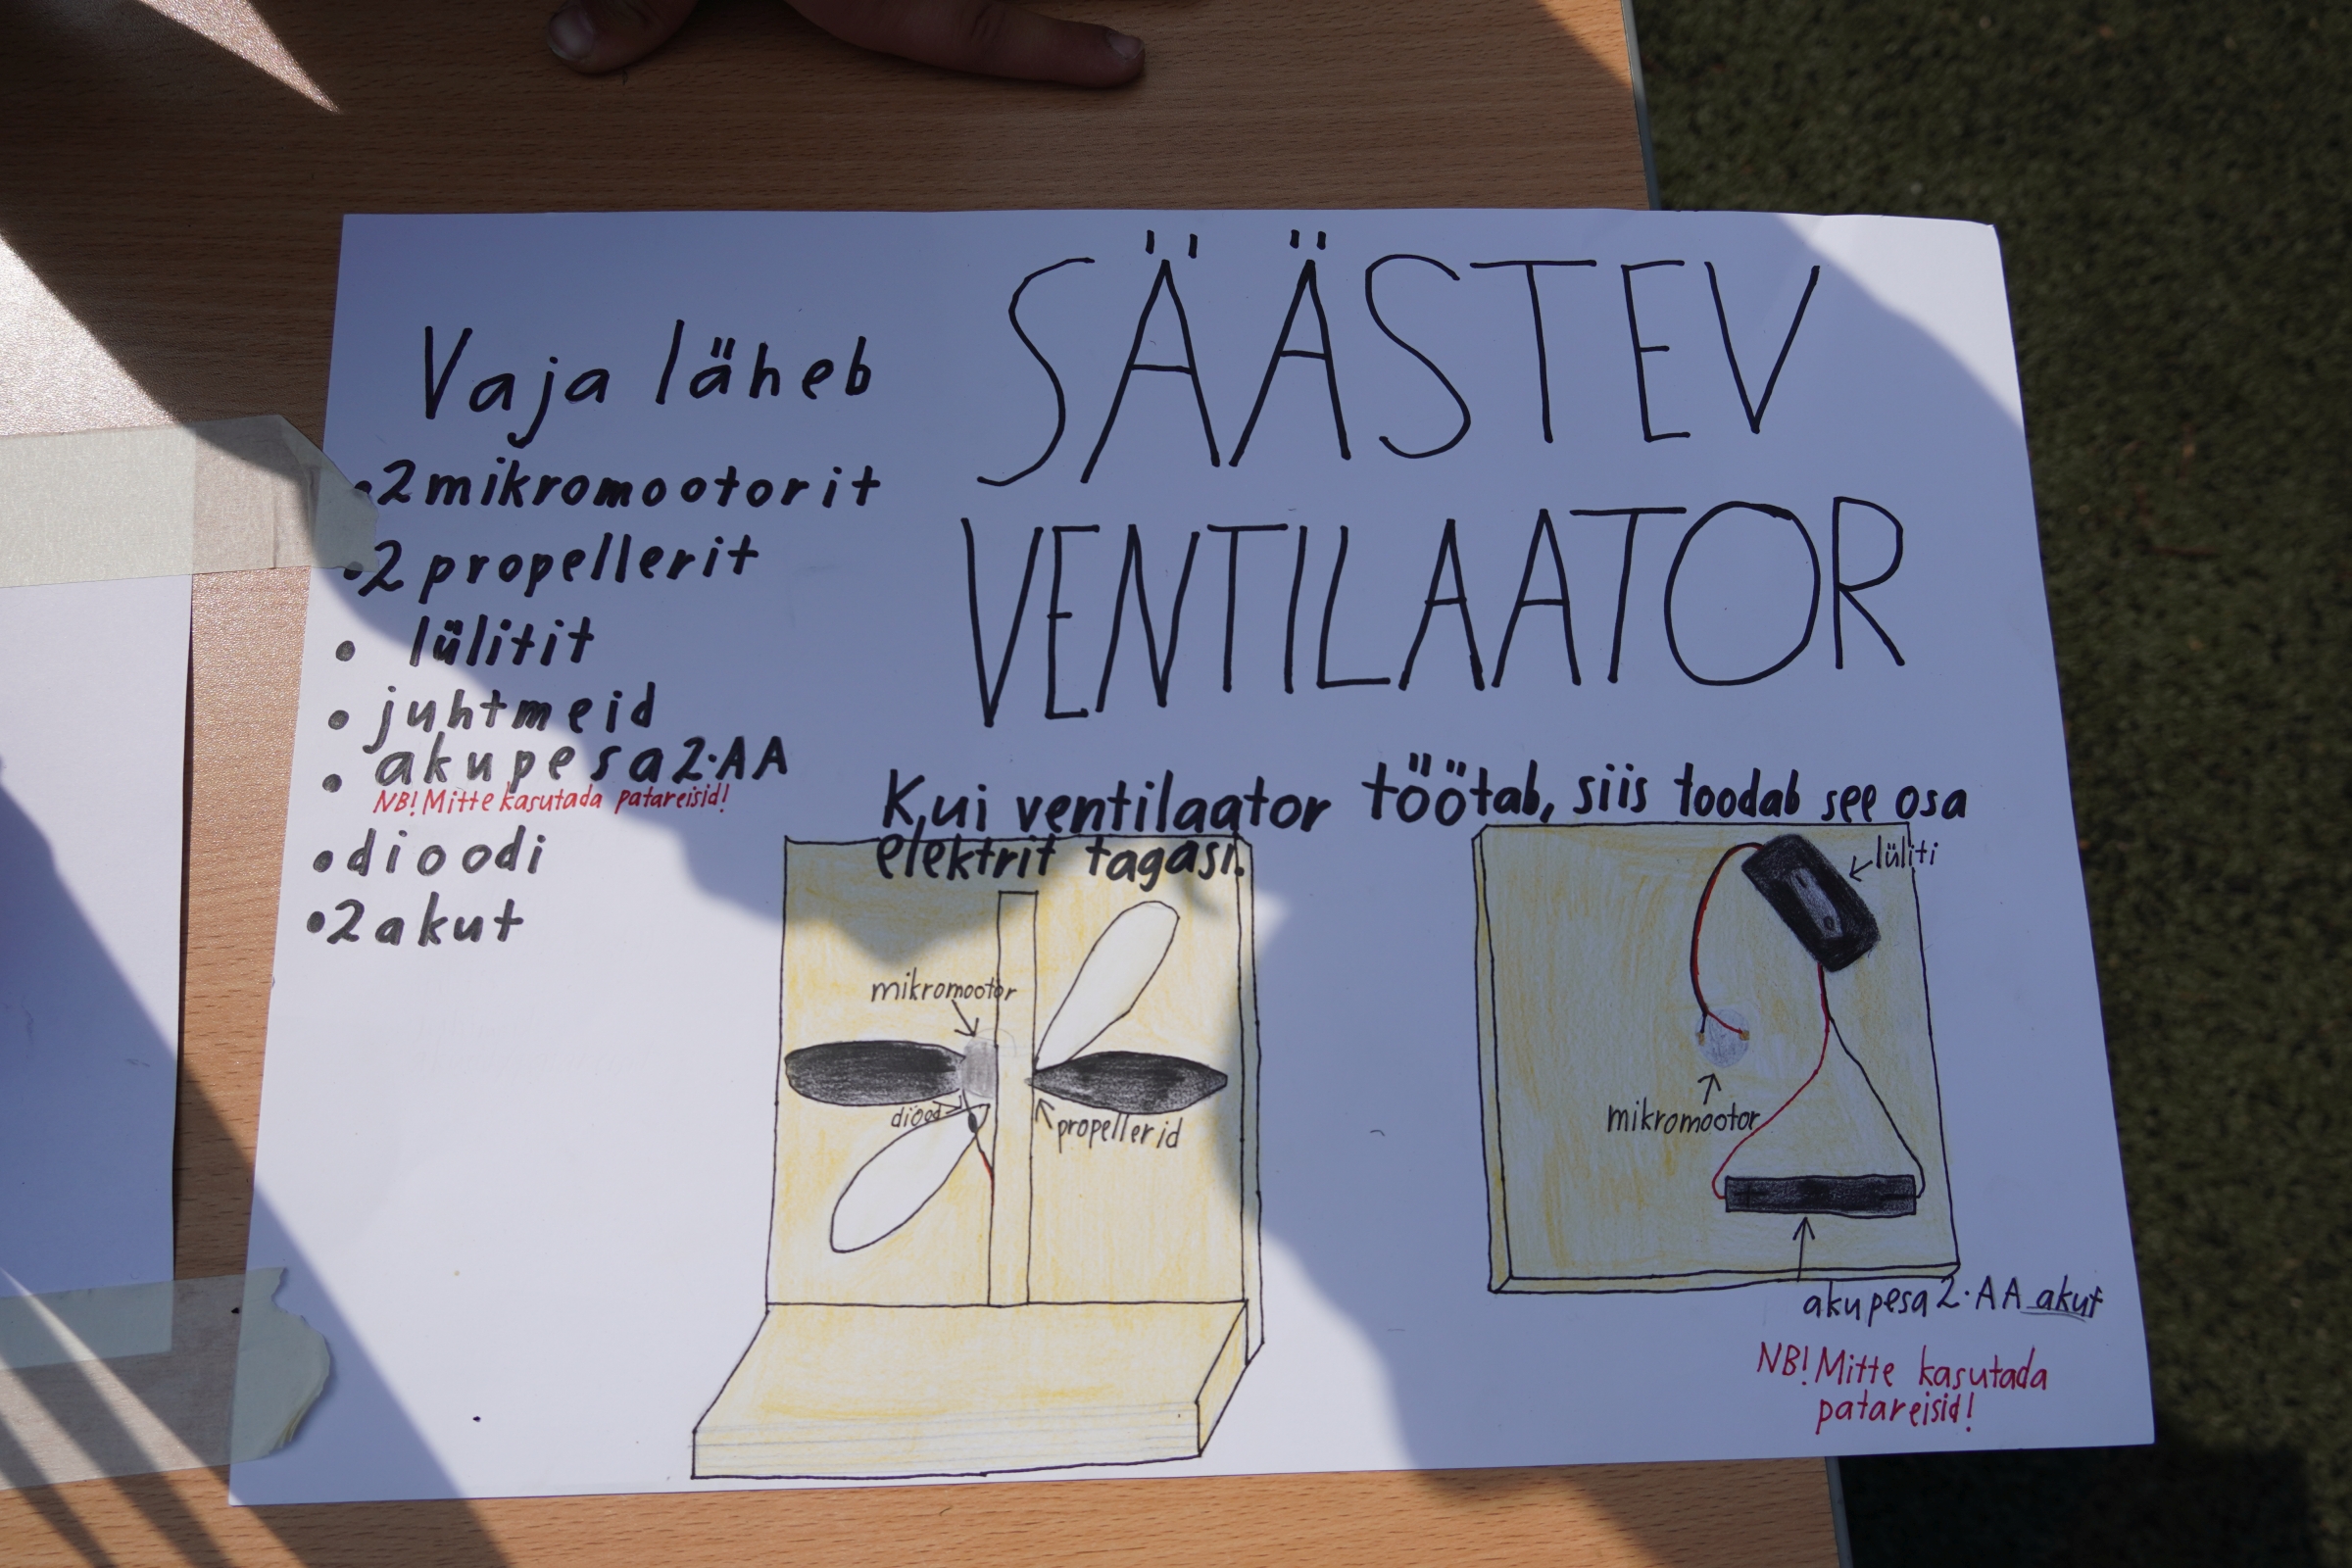 SÄÄSTEV
VENTILAATOR
Vaja läheb
•2 mikromootorit
•2 propellerit
• lülitit
• juhtmeid
• akupesa 2·AA
NB! Mitte kasutada patareisid!
• dioodi
•2 akut
Kui ventilaator töötab, siis toodab see osa
elektrit tagasi.
mikromootor
diood
propellerid
lüliti
mikromootor
akupesa 2·AA akut
NB! Mitte kasutada
patareisid!